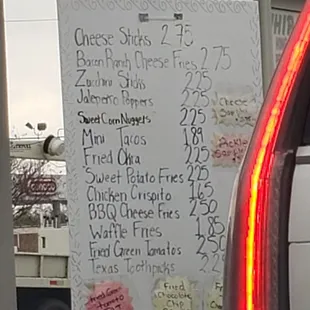 Cheese Sticks 2.75
Bacon Ranch Cheese Fries 2.75
Zucchini Sticks 2.25
Jalepeño Poppers 2.25
Sweet Corn Nuggets 2.25
Mini Tacos 1.89
Fried Okra 2.25
Sweet Potato Fries 2.25
Chicken Crispito 1.65
BBQ Cheese Fries 2.50
Waffle Fries 1.85
Fried Green Tomatos 2.50
Texas Toothpicks 2.2
Cheese
Pickle
Fried Green
Tomato
Fried
Chocolate
Chip